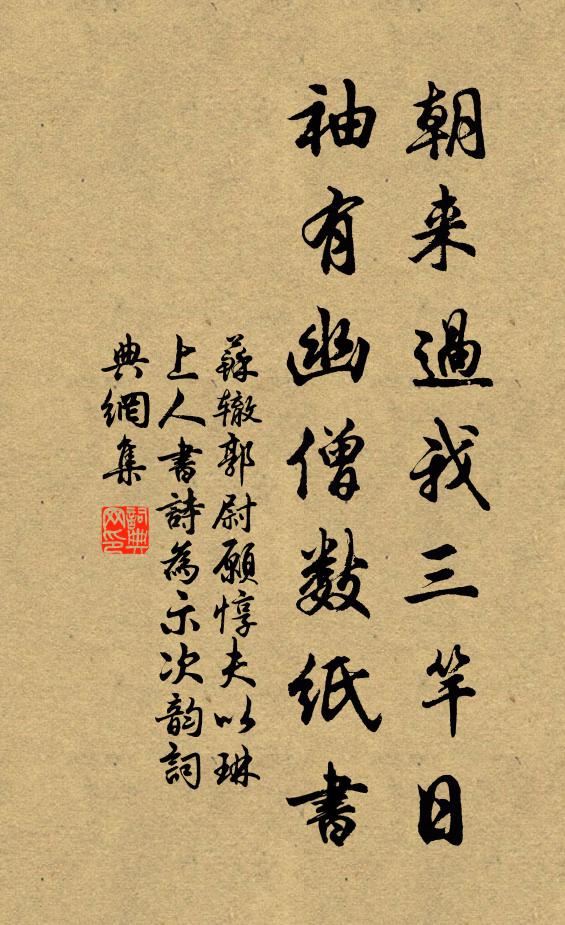 朝来過我三竿日
袖有幽僧数紙書
蘇辙郭尉願惇夫以琳
上人書詩為示次韵詞
典網集
詞典
网印